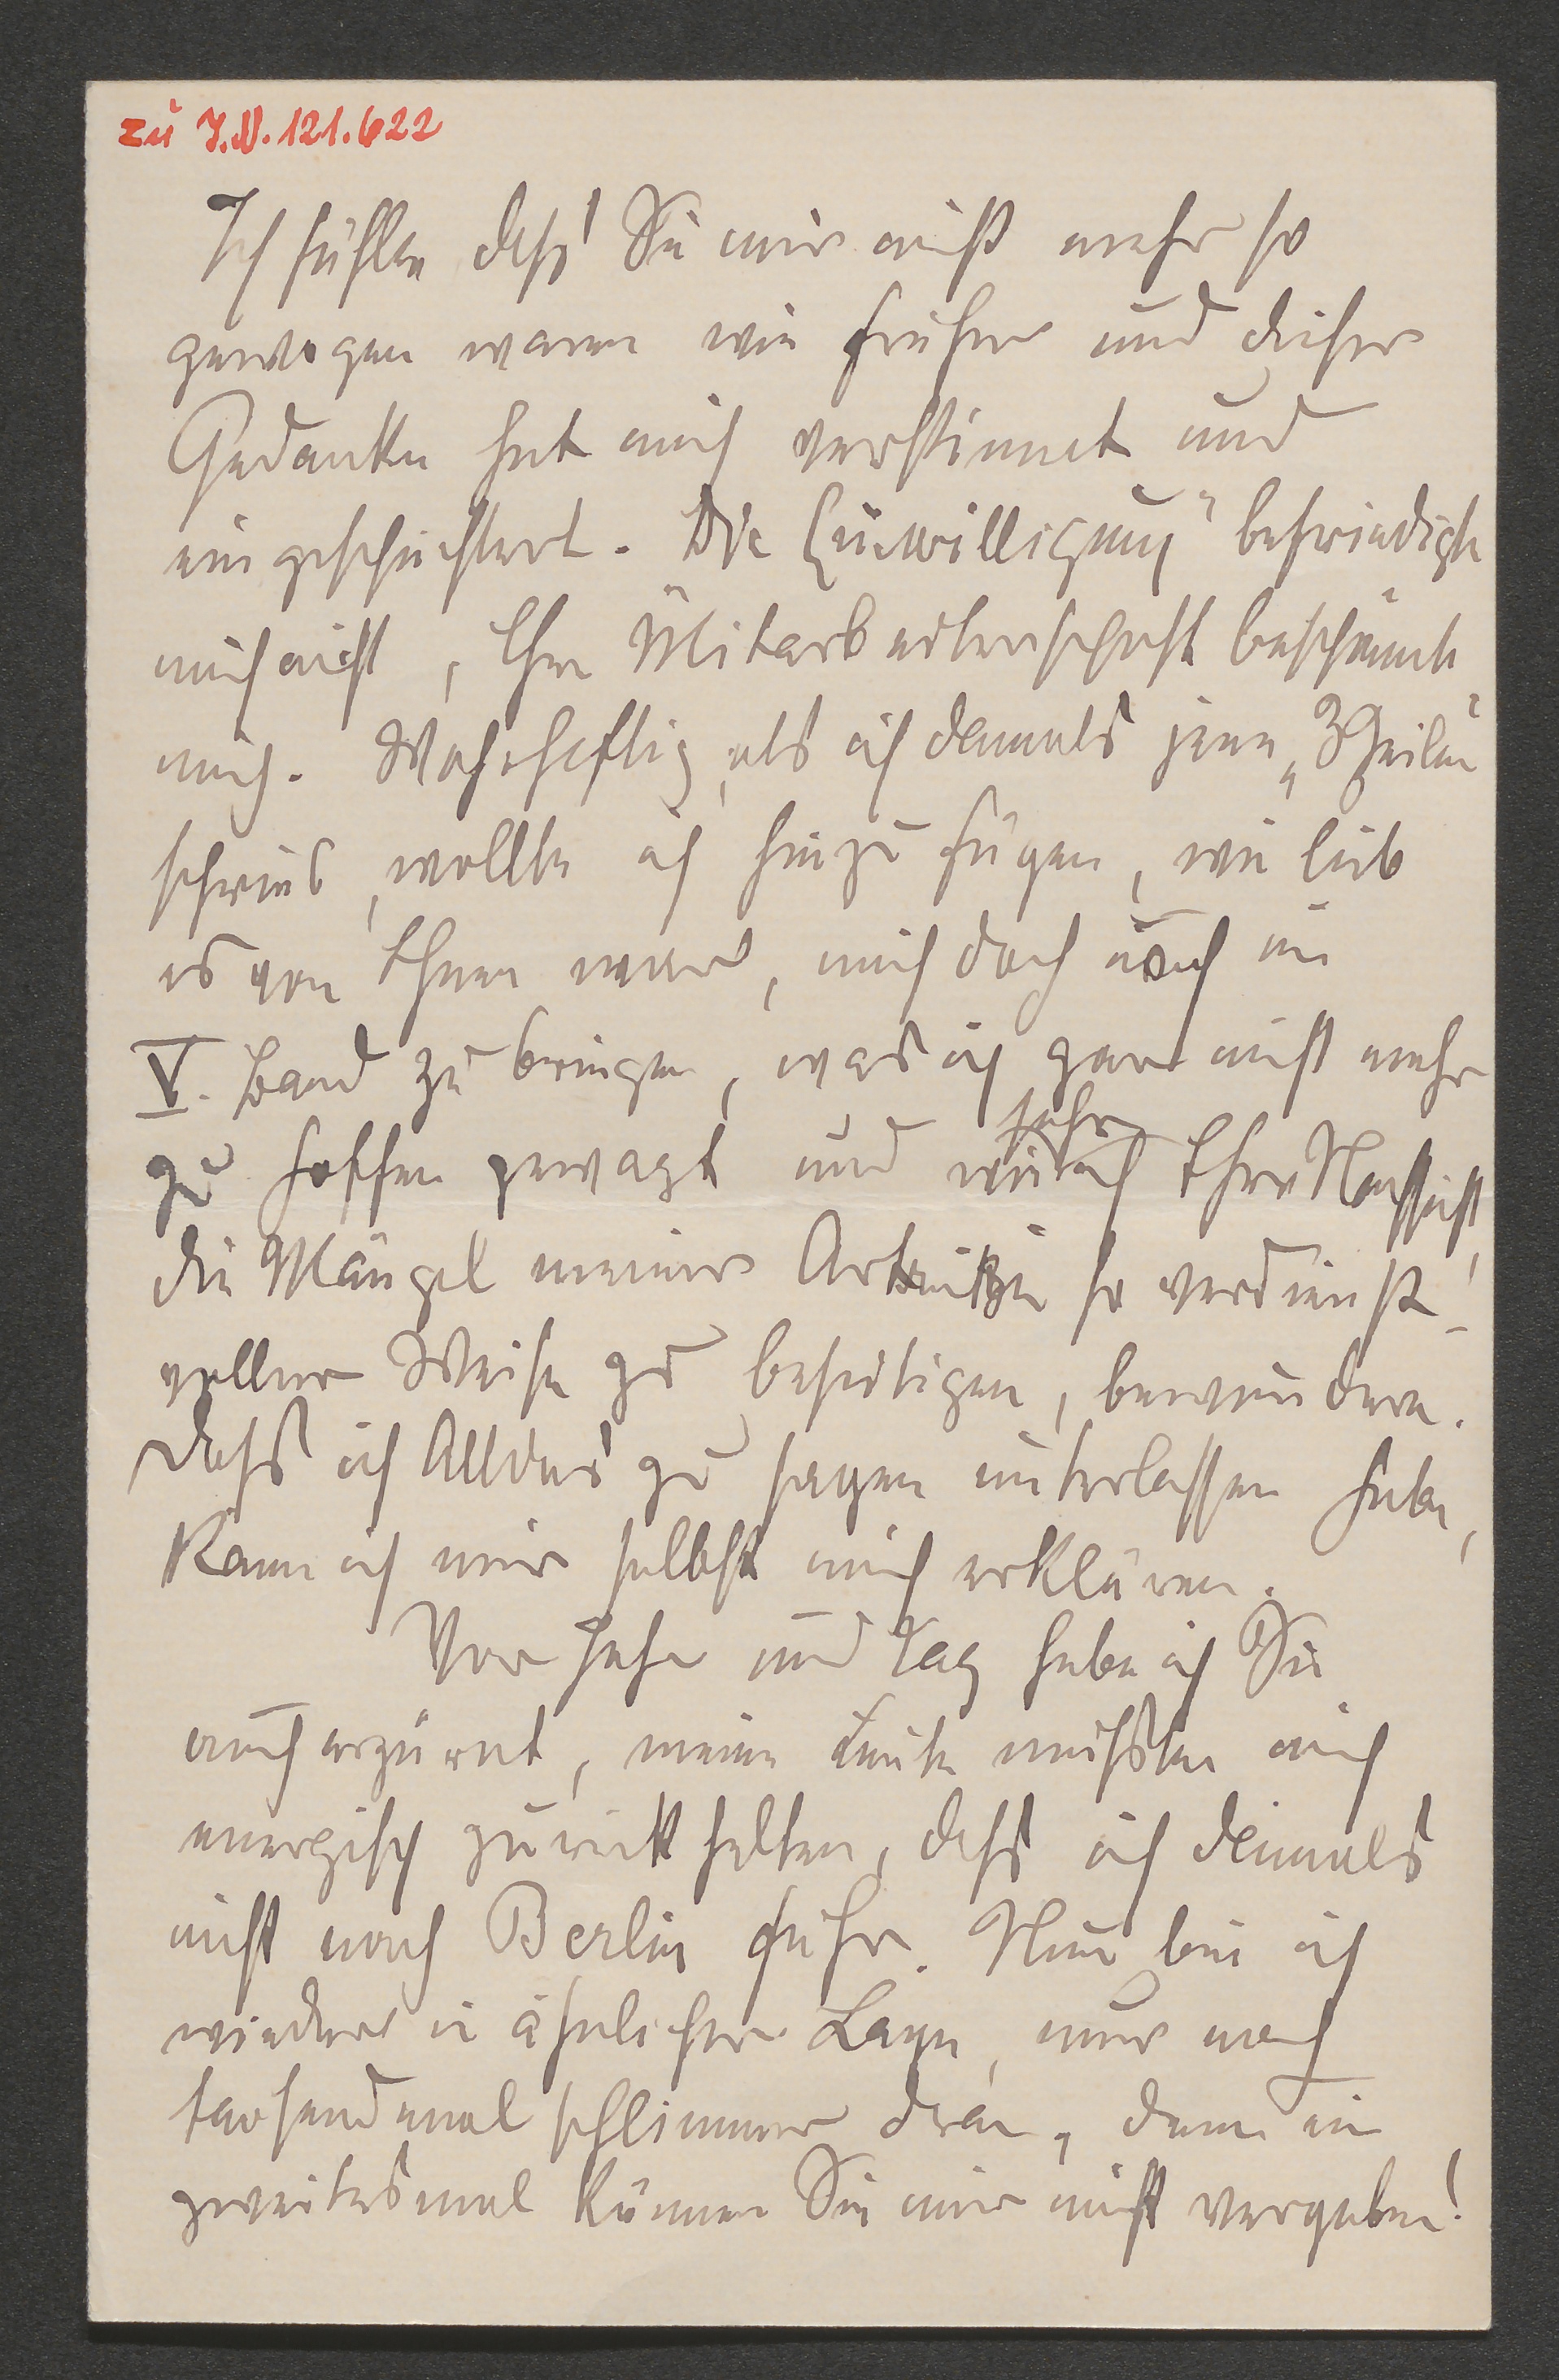 zu J.N. 121.622
Ich fühlte dass Sie mir nicht mehr so
gewogen waren wie früher und dieser
Gedanke hat mich verstimmt und
eingeschüchtert. Die Einwilligung" befriedigte
mich nicht, Ihre Mitarbeiterschaft beschämte
mich. Wahrhaftig, als ich damals jene „3 Zeilen"
schrieb, wollte ich hinzufügen, wie lieb
es von Ihnen war, mich doch noch im
V. Band zu bringen, was ich gar nicht mehr
zu hoffen gewagt und wie sehr ich Ihre Nachsicht,
die Mängel meiner Arbeit in so verdienst-
voller Weise zu beseitigen, bewundere.
Dass ich Alldies zu sagen unterlassen habe,
kann ich mir selbst nicht erklären.
Vor Jahr und Tag habe ich Sie
auch erzürnt, meine Leute mussten mich
energisch zurückhalten, dass ich damals
nicht nach Berlin fuhr. Nun bin ich
wieder in ähnlicher Lage, nur noch
tausendmal schlimmer dran, denn ein
zweitesmal können Sie mir nicht vergeben!